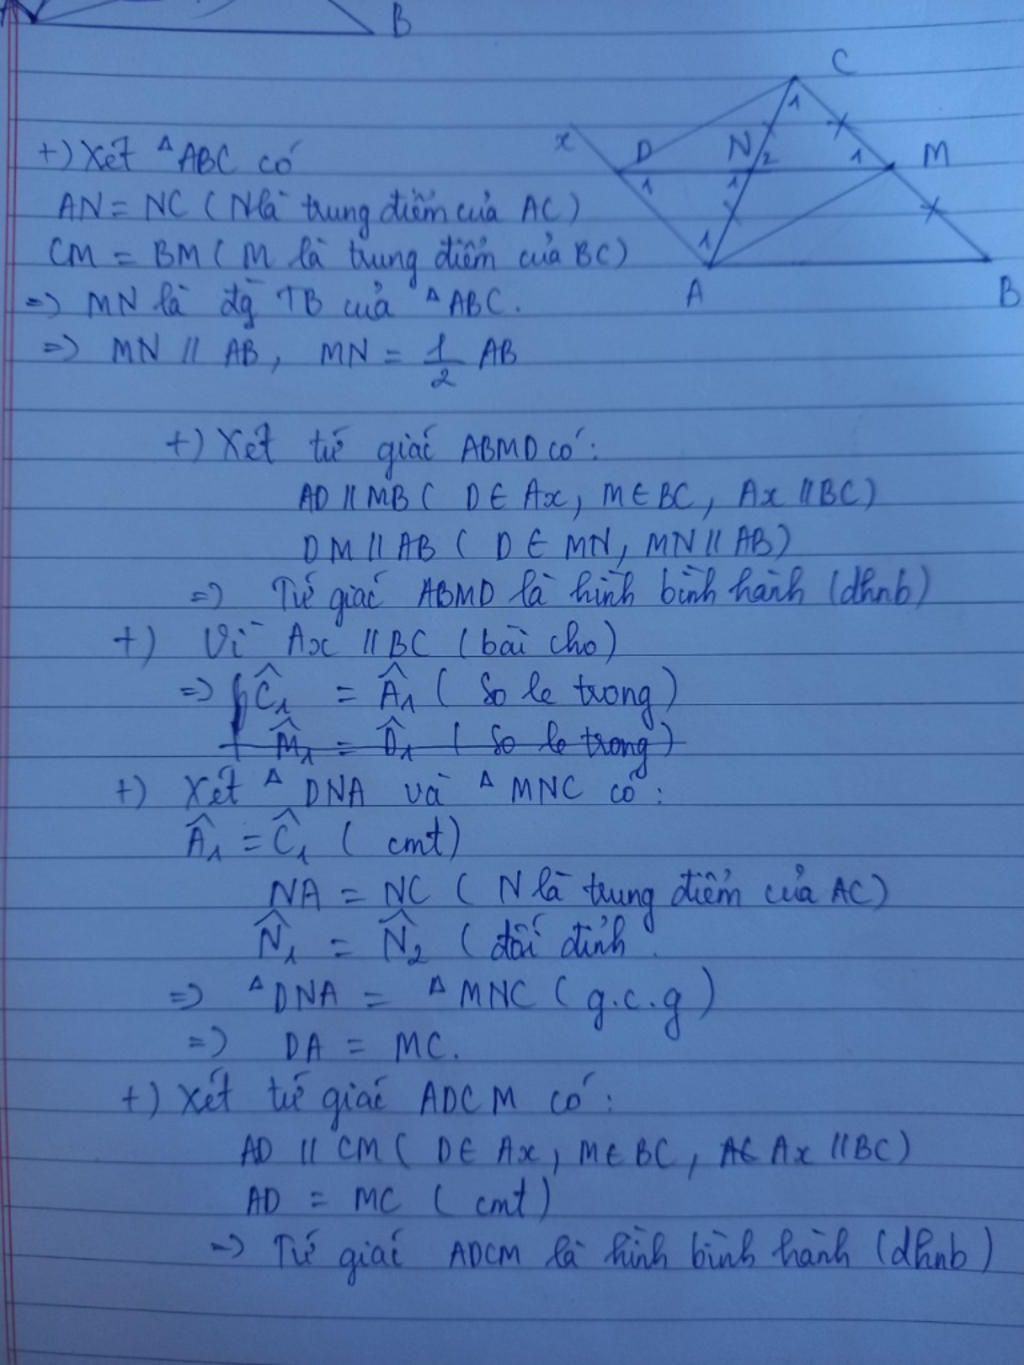 B
C
x D N 2 M
1 1 1 1
1
A B
+) Xét ΔABC có
AN = NC ( N là trung điểm của AC)
CM = BM ( M là trung điểm của BC)
=> MN là đg TB của ΔABC.
=> MN // AB, MN = 1/2 AB
+) Xét tứ giác ABMD có:
AD // MB ( D ∈ Ax, M ∈ BC, Ax // BC)
DM // AB ( D ∈ MN, MN // AB)
=> Tứ giác ABMD là hình bình hành (dhnb)
+) Vì Ax // BC (bài cho)
=> Ĉ₁ = Â₁ ( So le trong)
M̂₁ = D̂₁ ( So le trong)
+) Xét Δ DNA và Δ MNC có:
Â₁ = Ĉ₁ ( cmt)
NA = NC ( N là trung điểm của AC)
N̂₁ = N̂₂ (đối đỉnh
=> ΔDNA = ΔMNC ( g.c.g)
=> DA = MC.
+) Xét tứ giác ADCM có:
AD // CM ( D ∈ Ax, M ∈ BC, Ax // BC)
AD = MC ( cmt)
=> Tứ giác ADCM là hình bình hành (dhnb)